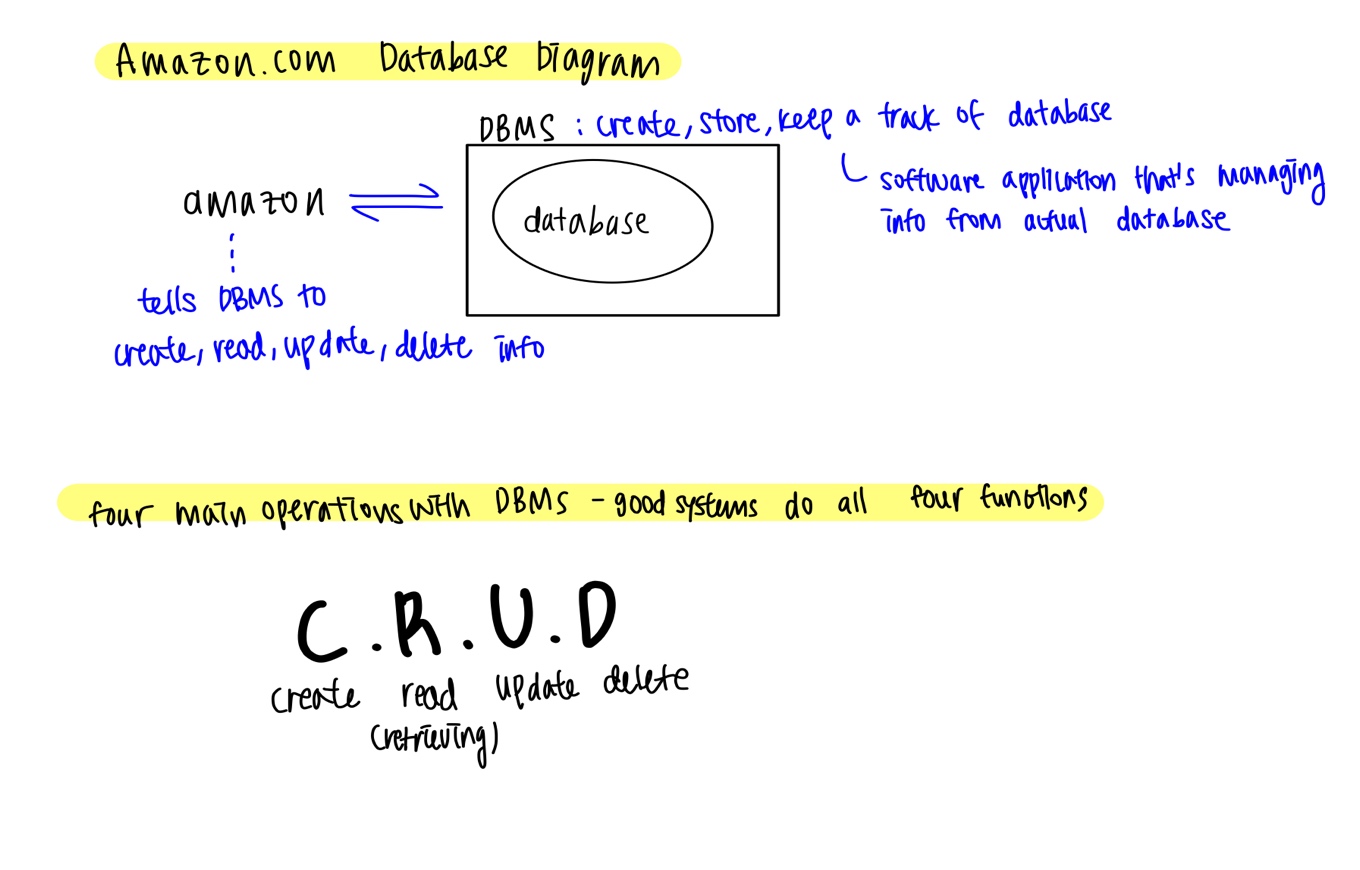 Amazon.com Database Diagram
DBMS : create, store, keep a track of database
software application that's managing
info from actual database
amazon
database
tells DBMS to
create, read, update, delete info
four main operations with DBMS - good systems do all four functions
C.R.U.D
create read update delete
(retrieving)